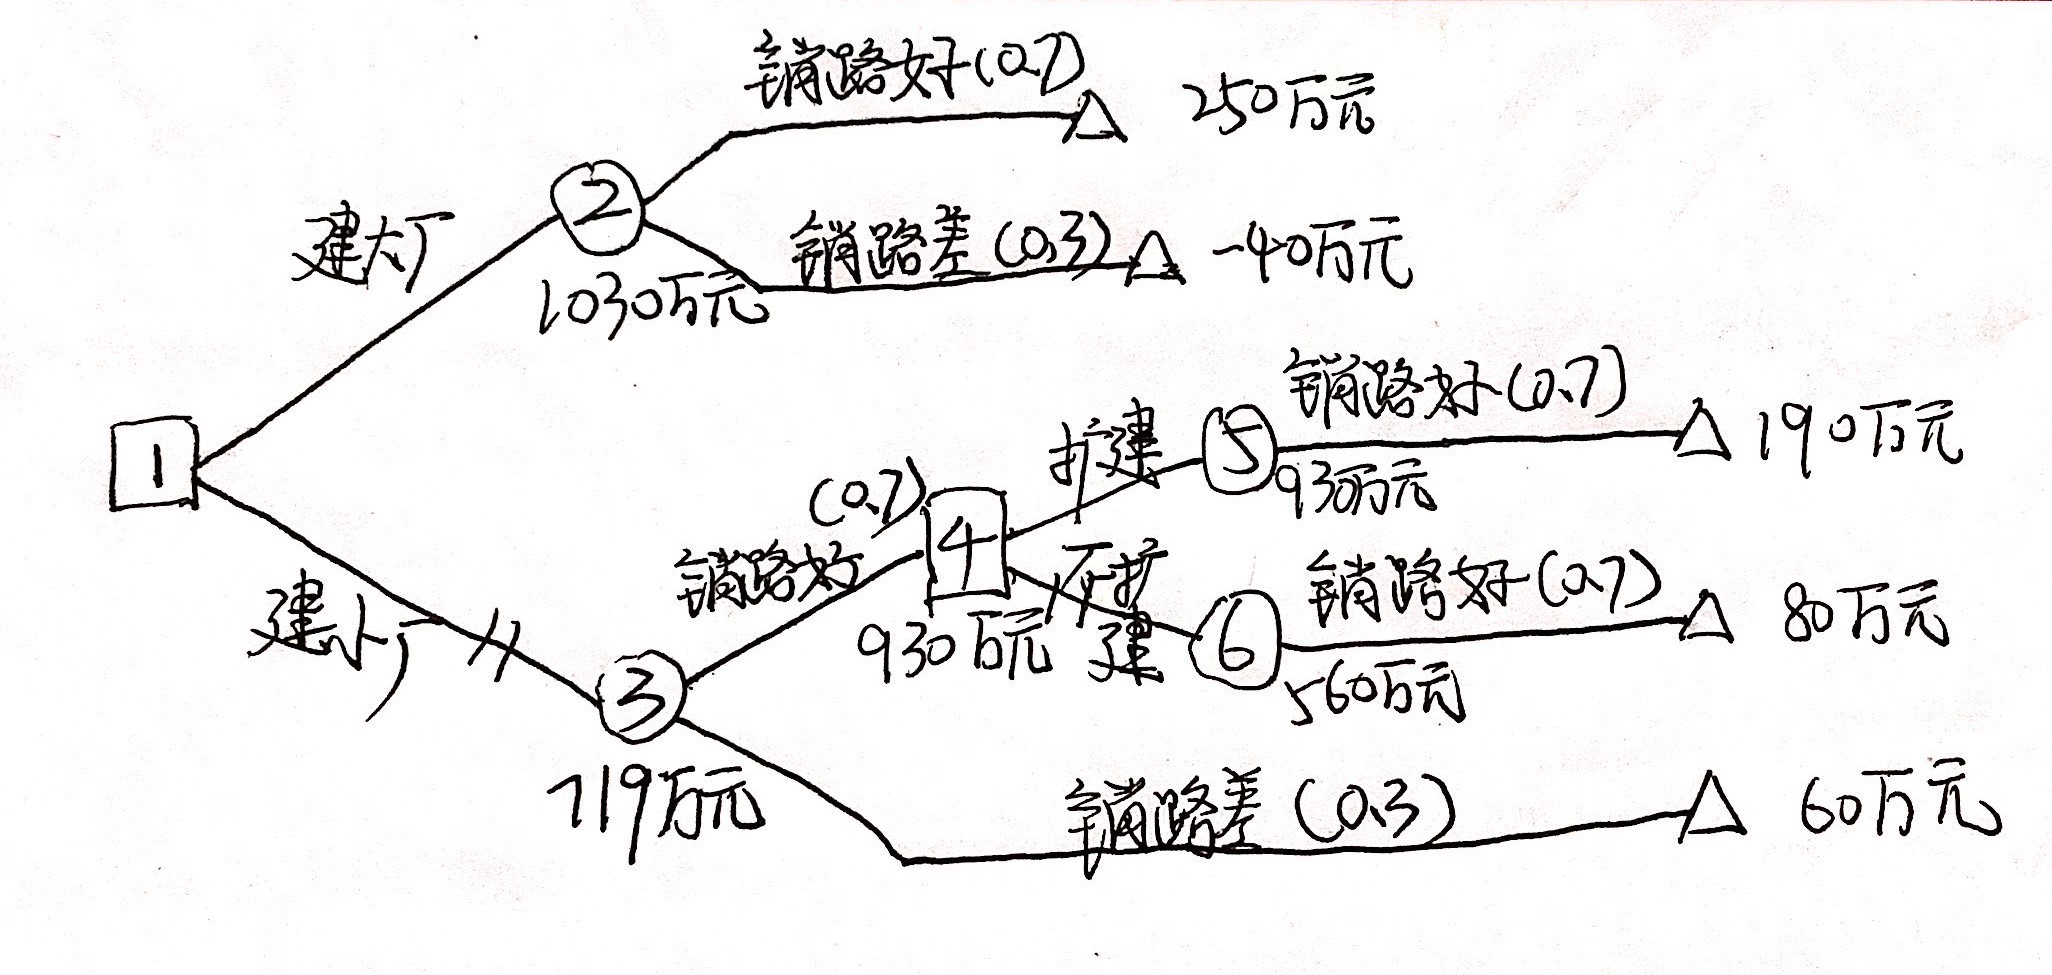 销路好(0.7)
250万元
建大厂
2
销路差(0.3)
-40万元
1030万元
1
销路好(0.7)
扩建
5
190万元
930万元
(0.7)
销路好
4
不扩建
930万元
销路好(0.7)
6
80万元
560万元
建小厂
3
719万元
销路差(0.3)
60万元